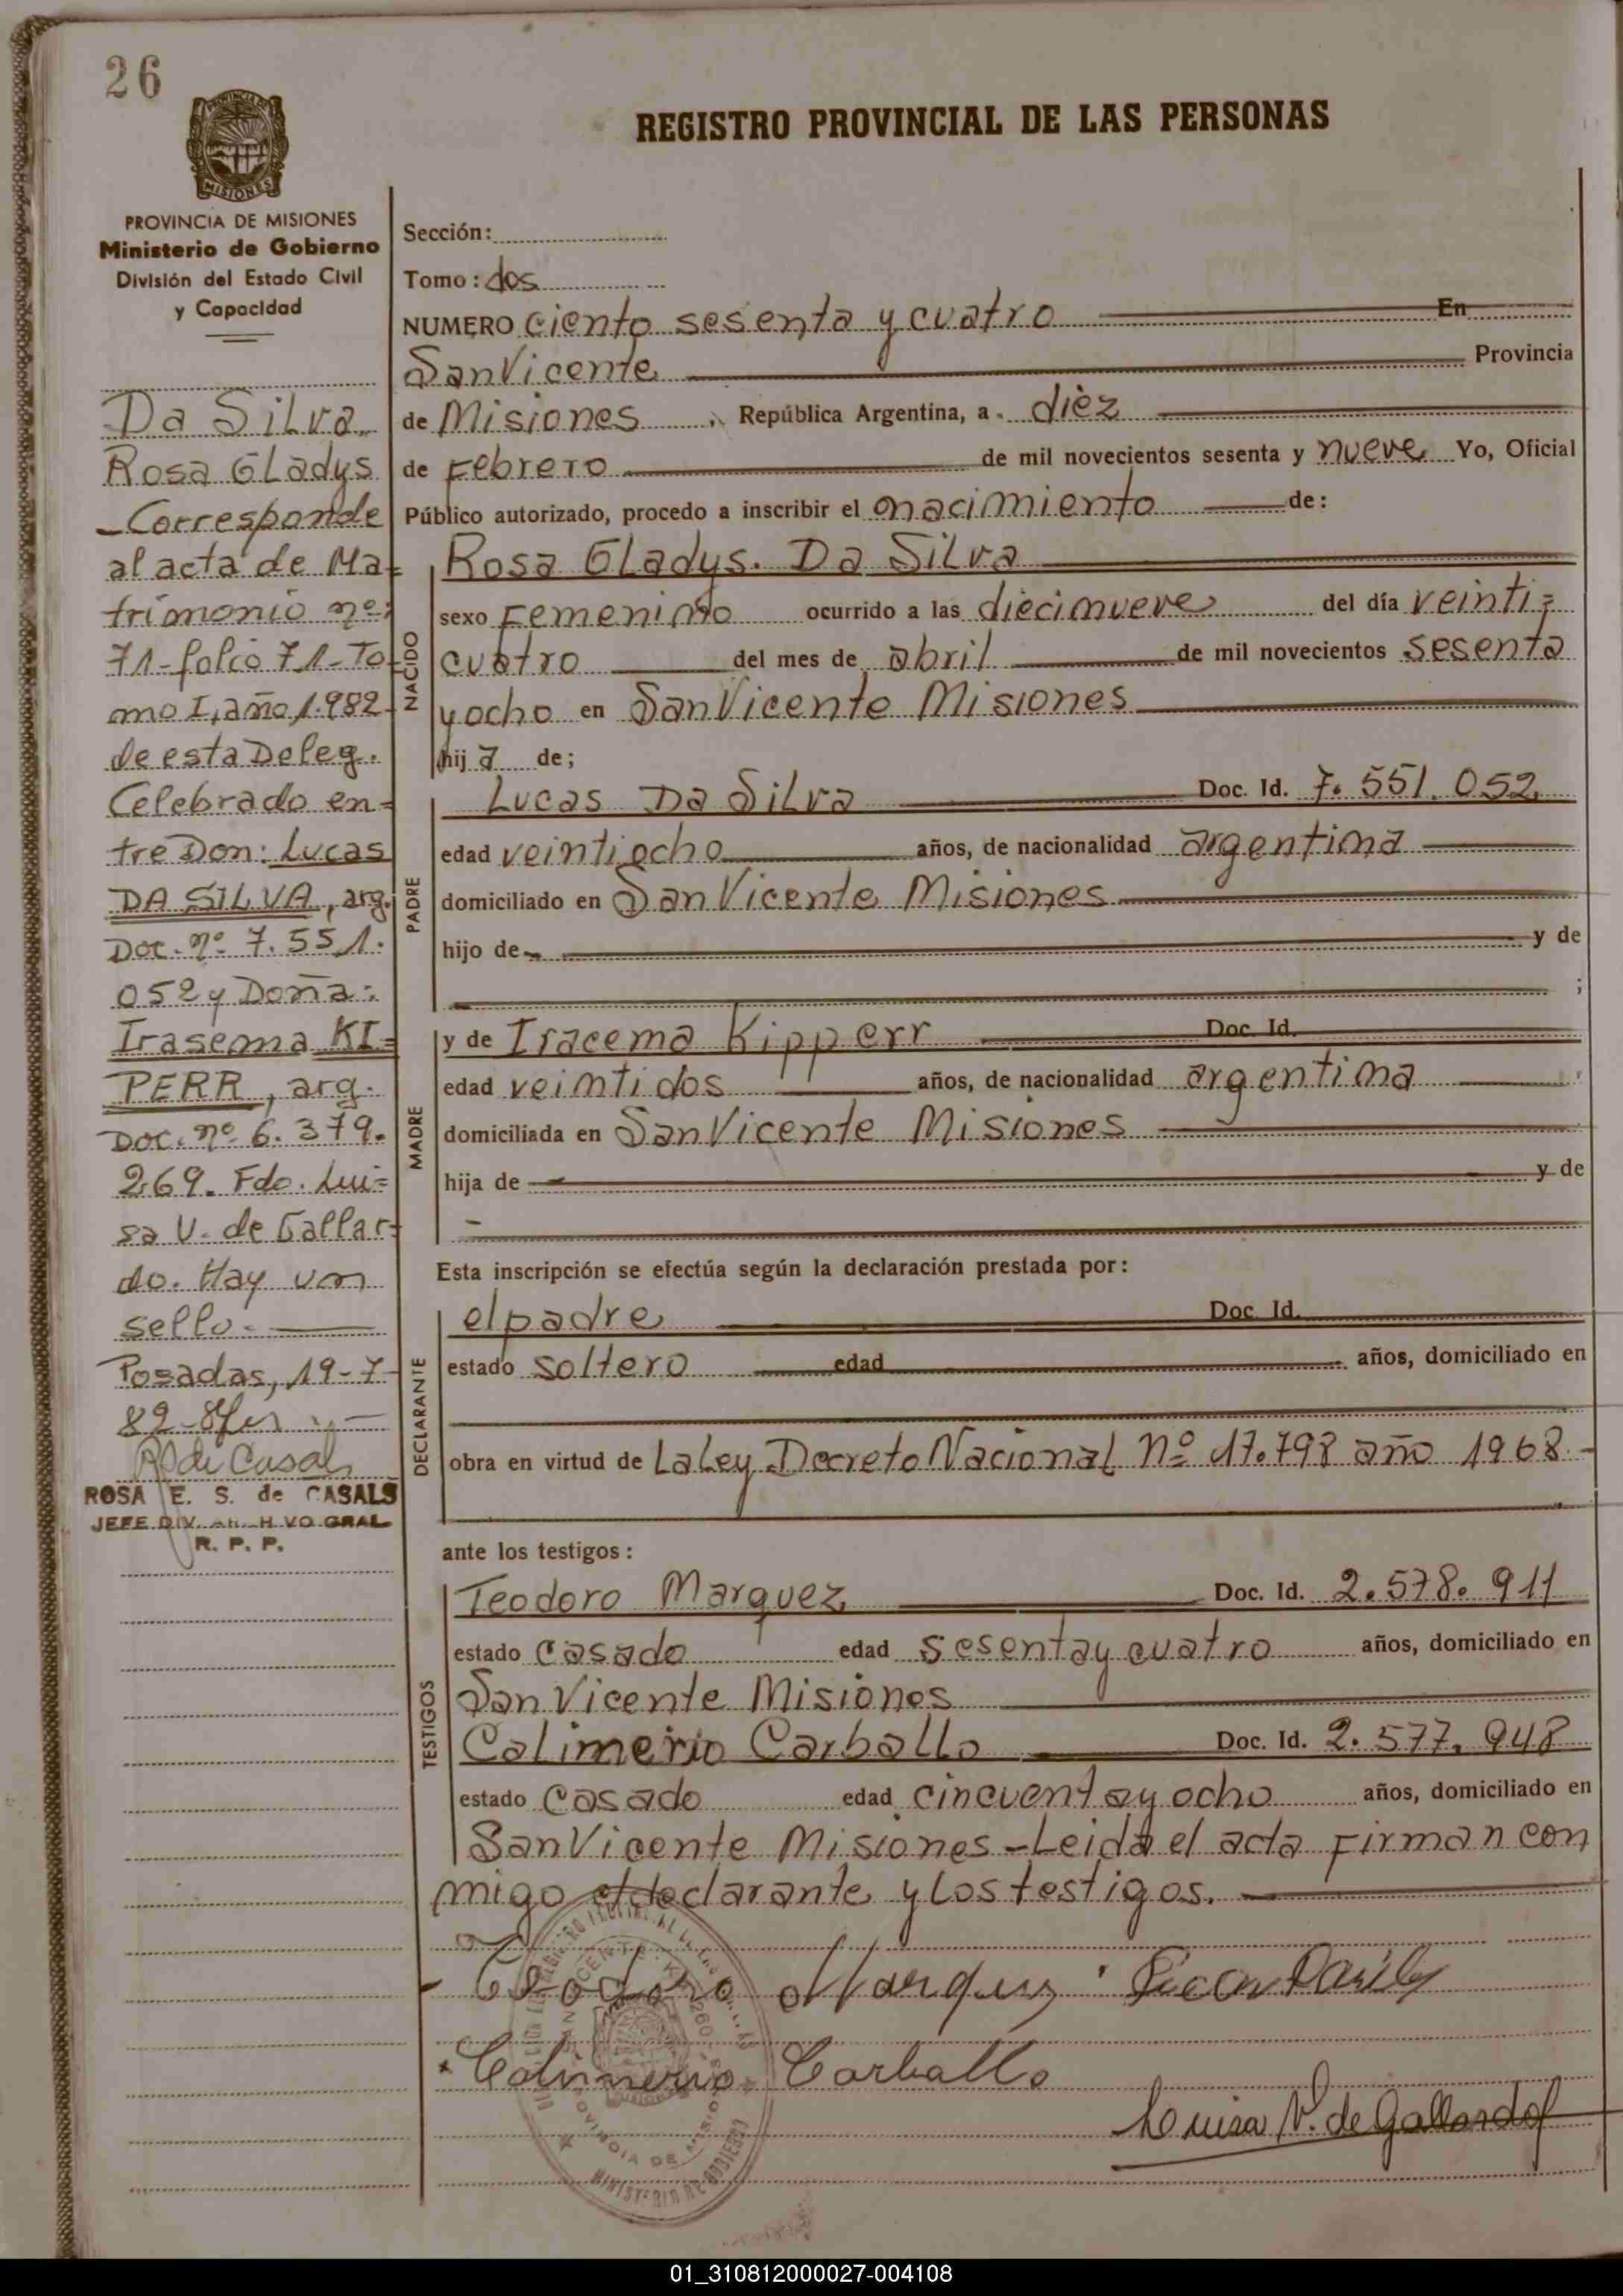 26
REGISTRO PROVINCIAL DE LAS PERSONAS
PROVINCIA DE MISIONES
MISIONES
PROVINCIA DE MISIONES
Ministerio de Gobierno
División del Estado Civil
y Capacidad
Da Silva
Rosa Gladys
-Corresponde
al acta de Ma=
trimonio nº:
71-folio 71-To-
mo I, año 1.982-
de esta Deleg.
Celebrado en=
tre Don: Lucas
DA SILVA, arg.
Doc. nº 7.551.
052 y Doña:
Irasema KI=
PERR, arg.
Doc. nº 6.379.
269. Fdo. Lui=
sa V. de Gallar=
do. Hay un
sello.
Posadas, 19-7-
82-
ROSA E. S. de CASALS
JEFE DIV. ARCHIVO GRAL
R. P. P.
Sección:
Tomo: dos
NUMERO ciento sesenta y cuatro En
San Vicente Provincia
de Misiones, República Argentina, a diez
de Febrero de mil novecientos sesenta y nueve Yo, Oficial
Público autorizado, procedo a inscribir el nacimiento de:
NACIDO
Rosa Gladys. Da Silva
sexo Femenino ocurrido a las diecinueve del día veinti=
cuatro del mes de abril de mil novecientos sesenta
y ocho en San Vicente Misiones
hija de;
PADRE
Lucas Da Silva Doc. Id. 7.551.052.
edad veintiocho años, de nacionalidad argentina
domiciliado en San Vicente Misiones
hijo de y de
;
MADRE
y de Iracema Kipperr Doc. Id.
edad veintidos años, de nacionalidad argentina
domiciliada en San Vicente Misiones
hija de y de
Esta inscripción se efectúa según la declaración prestada por:
DECLARANTE
el padre Doc. Id.
estado soltero edad años, domiciliado en
obra en virtud de La Ley Decreto Nacional Nº 17.798 año 1968.-
ante los testigos:
TESTIGOS
Teodoro Marquez Doc. Id. 2.578.911
estado casado edad sesenta y cuatro años, domiciliado en
San Vicente Misiones
Calimerio Carballo Doc. Id. 2.577.948
estado casado edad cincuenta y ocho años, domiciliado en
San Vicente Misiones-Leida el acta Firman con
migo el declarante y los testigos.
Teodoro Marquez
Calimerio Carballo
Luisa V. de Gallardo
PROVINCIA DE MISIONES
MINISTERIO DE GOBIERNO
01_310812000027-004108